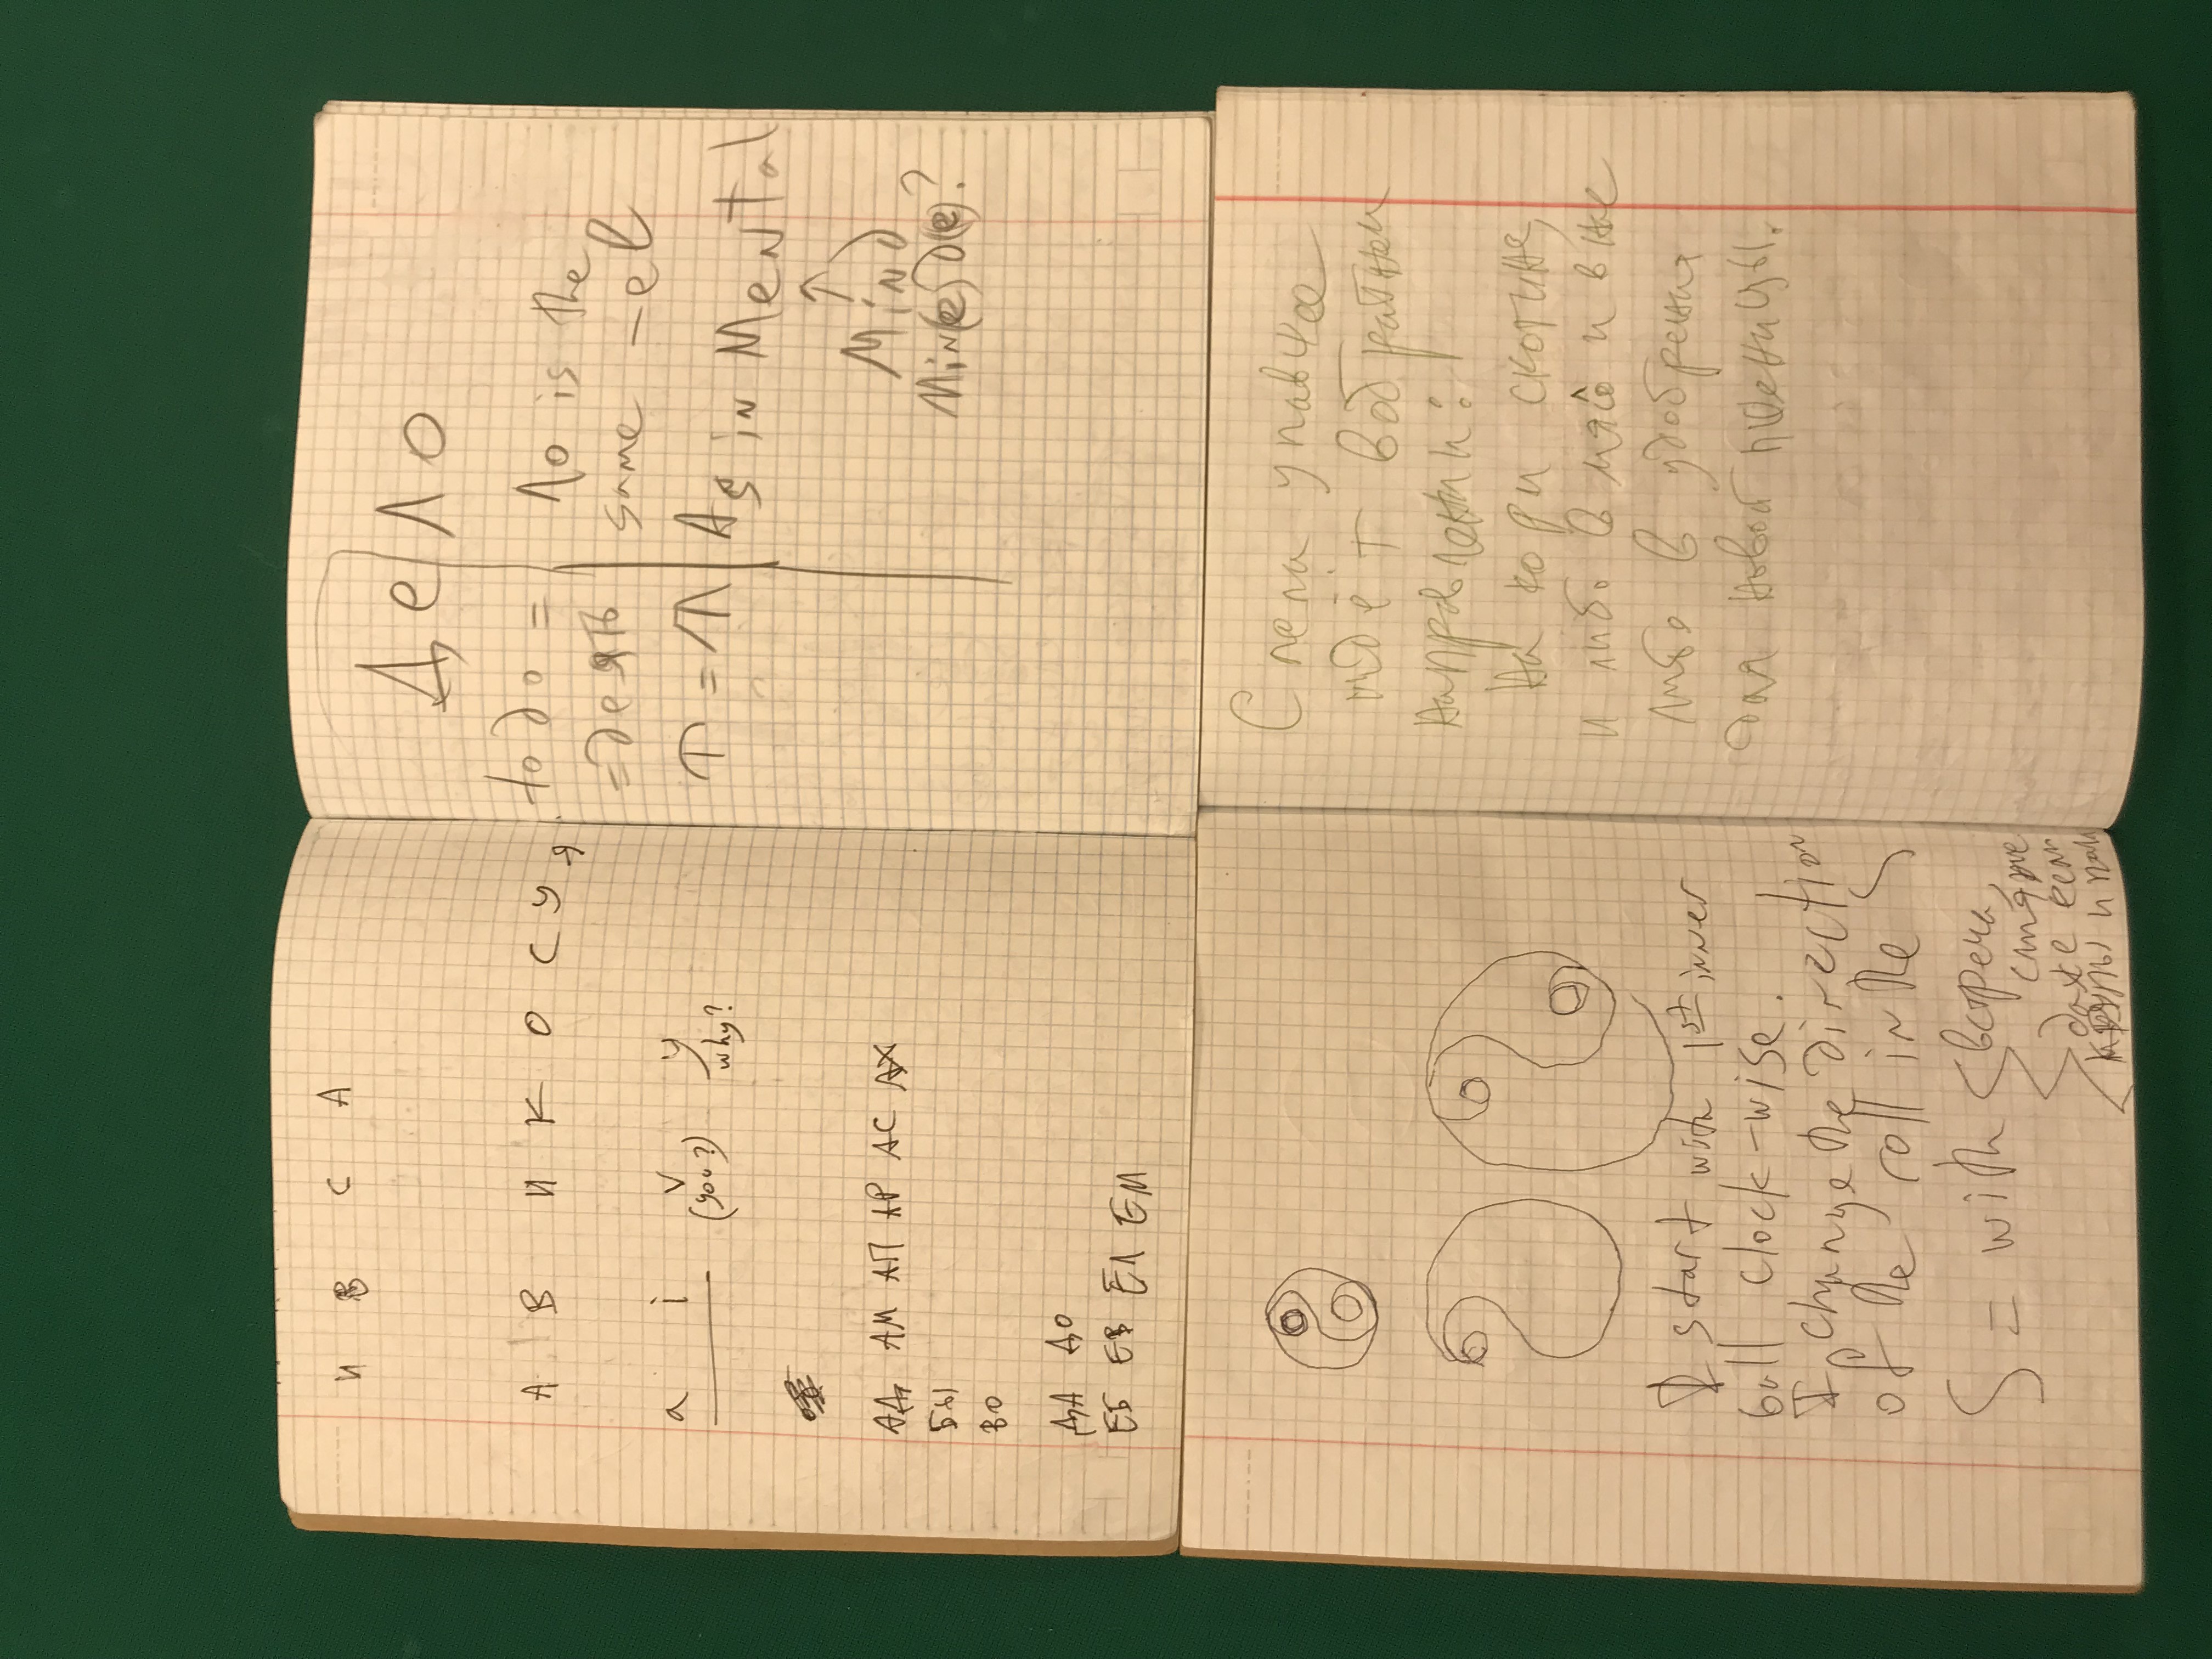 И В С А
А В И К О С У Я
a i v y
(you?) why?
АД АМ АП АР АС АХ
БЫ
ВО
ДА ДО
ЕБ ЕВ ЕЛ ЕМ
Дело
to do =
= деять
Т =
ло is the
same -el
As in Mental
Mind
Min(e) d(e)?
I start with 1st inner
ball clock-wise.
I change the direction
of the roll in the S
S = with
встреча,
даже если
и
упавшее
идёт в обратном
направлении:
На скотине,
и либо в мясо и в не
либо в удобрения
для новой пшеницы.